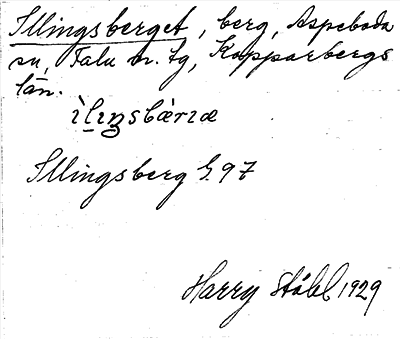 Illingsberget, berg, Aspeboda
sn, Falu n. tg, Kopparbergs
län.
ìlıŋsbæ̀rıæ
Illingsberg G. 97
Harry Ståhl 1929